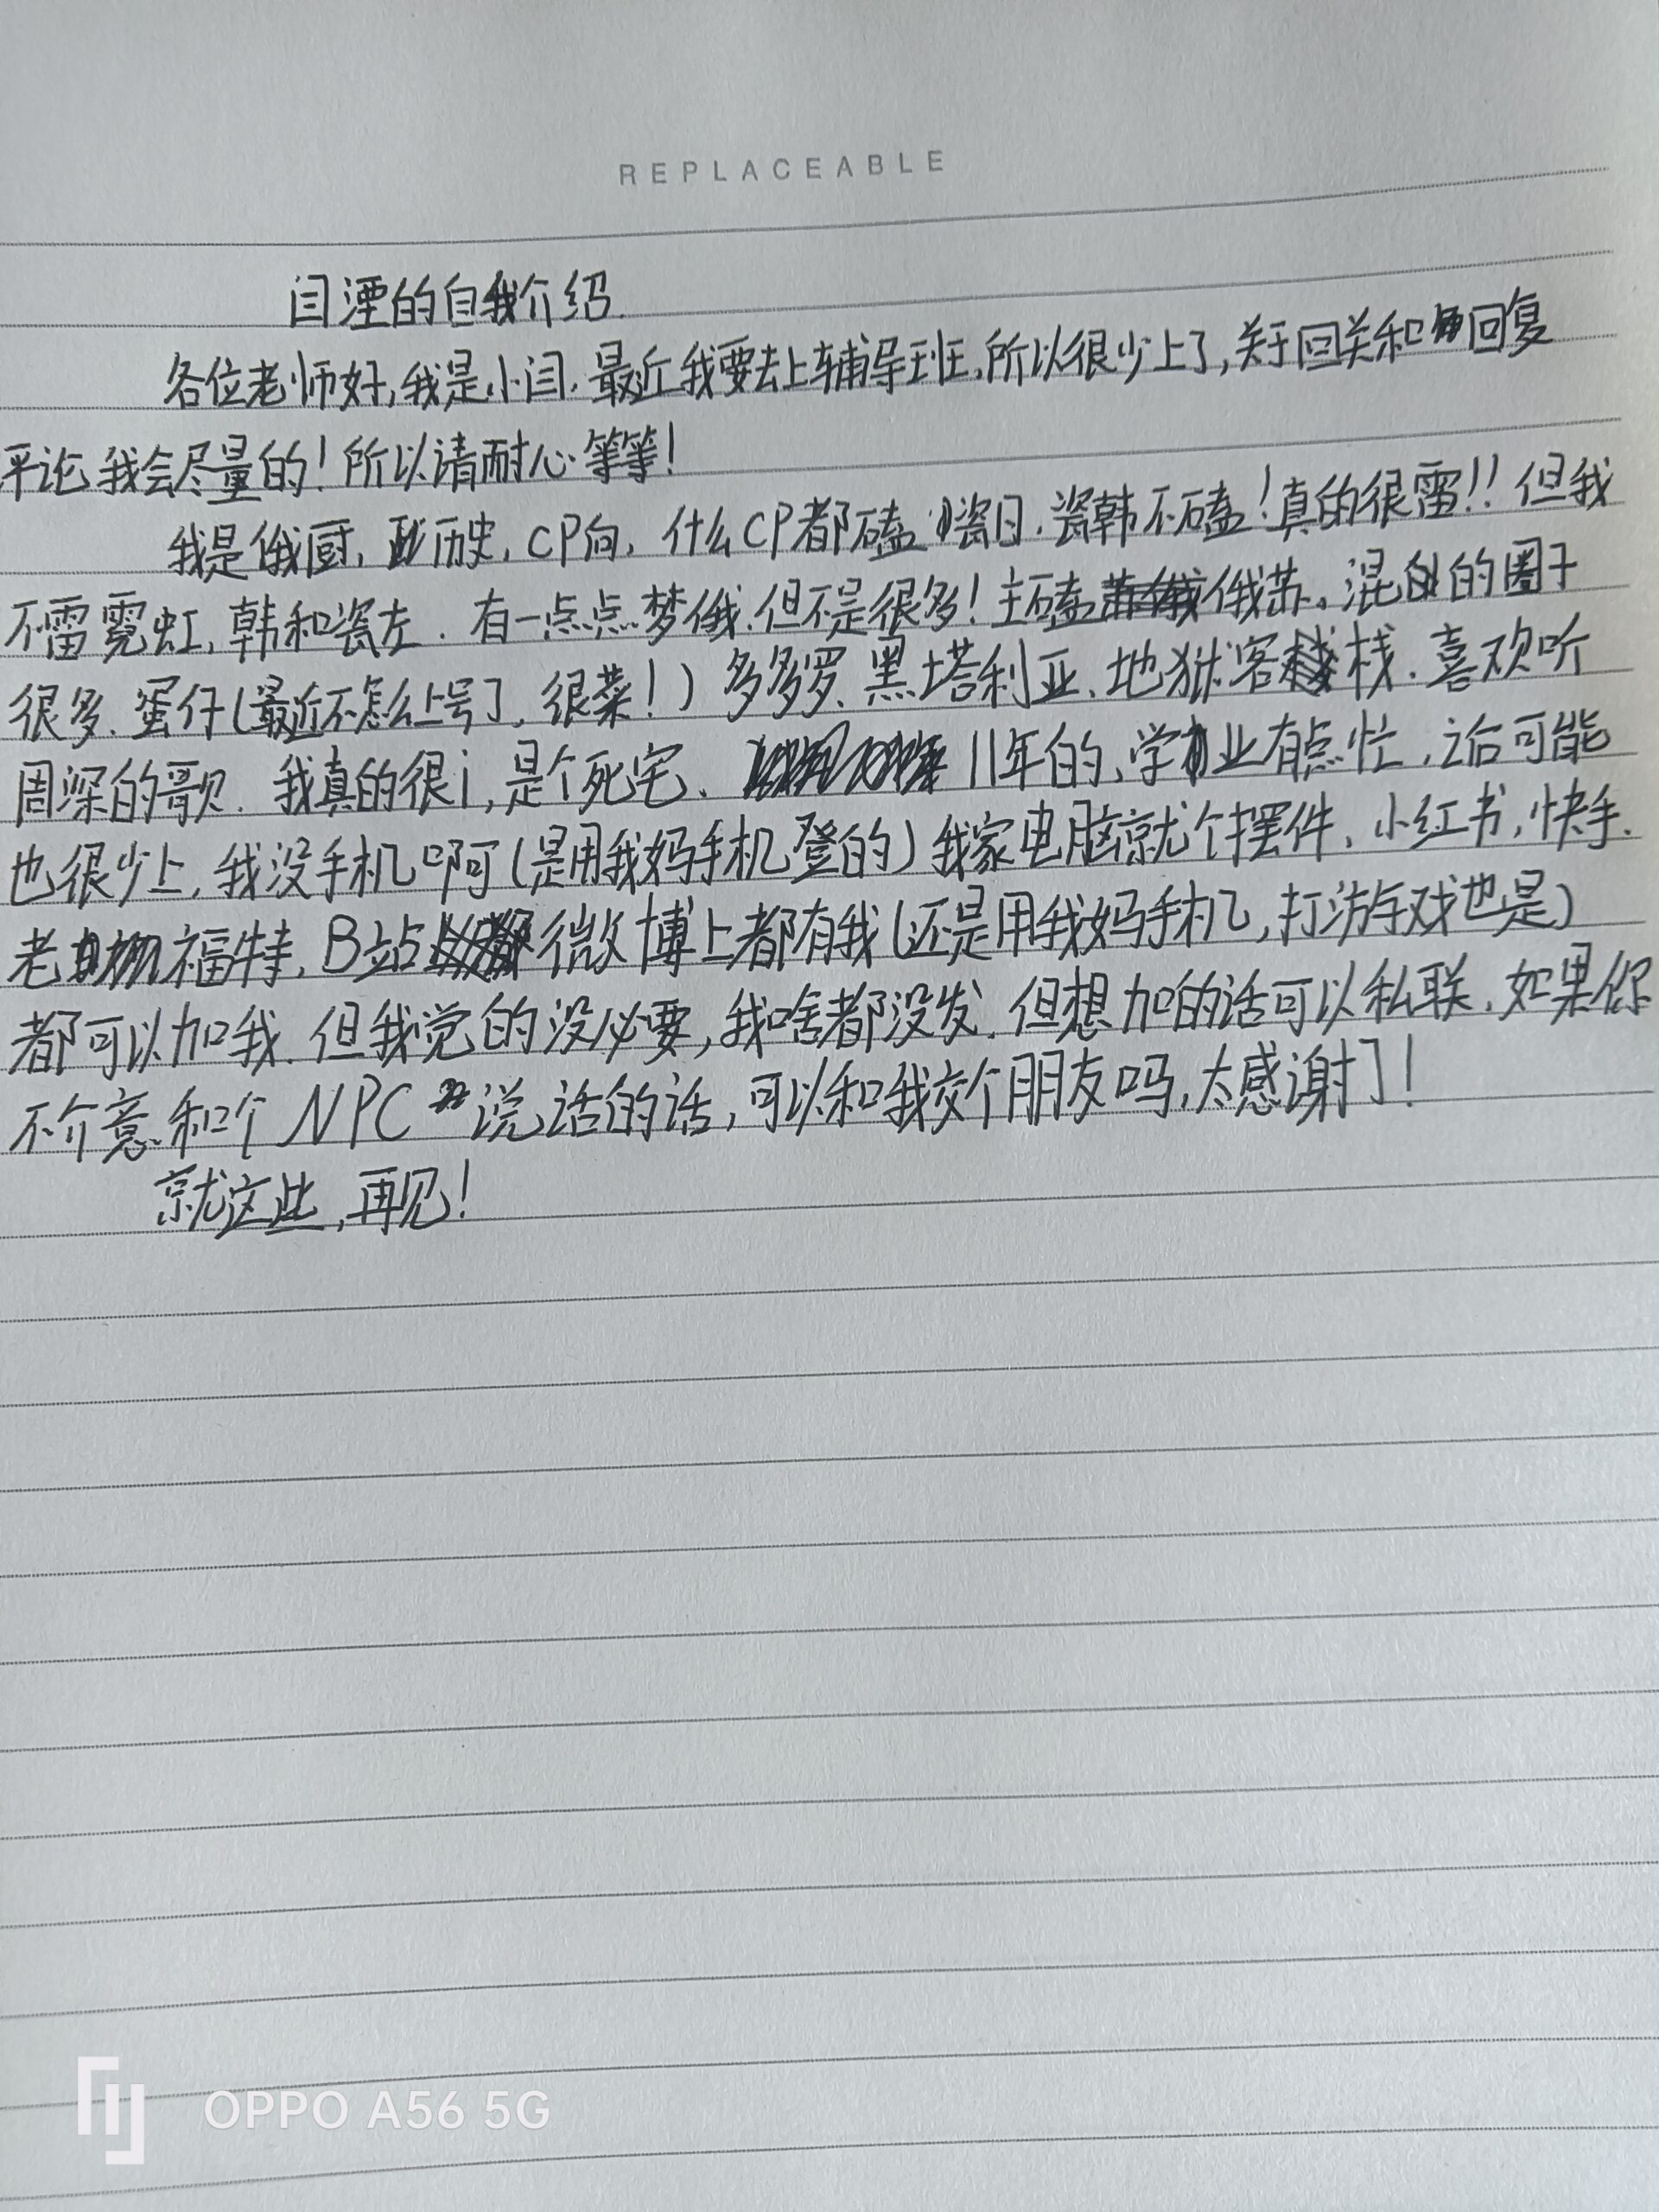 REPLACEABLE
闫湮的自我介绍.
各位老师好,我是小闫.最近我要去上辅导班,所以很少上了,关于回关和回复
评论我会尽量的!所以请耐心等等!
我是俄厨,历史,CP向,什么CP都磕,瓷日.瓷韩不磕!真的很雷!!但我
不雷霓虹,韩和瓷左.有一点点梦俄.但不是很多!主磕俄苏。混的圈子
很多.蛋仔(最近不怎么上号了,很菜!)多多罗、黑塔利亚、地狱客栈.喜欢听
周深的歌.我真的很i,是个死宅、11年的、学业有点忙,之后可能
也很少上,我没手机啊(是用我妈手机登的)我家电脑就个摆件、小红书,快手.
老福特,B站微博上都有我(还是用我妈手机,打游戏也是)
都可以加我.但我觉的没必要,我啥都没发.但想加的话可以私联.如果你
不介意和个NPC说话的话,可以和我交个朋友吗,太感谢了!
就这些,再见!
OPPO A56 5G